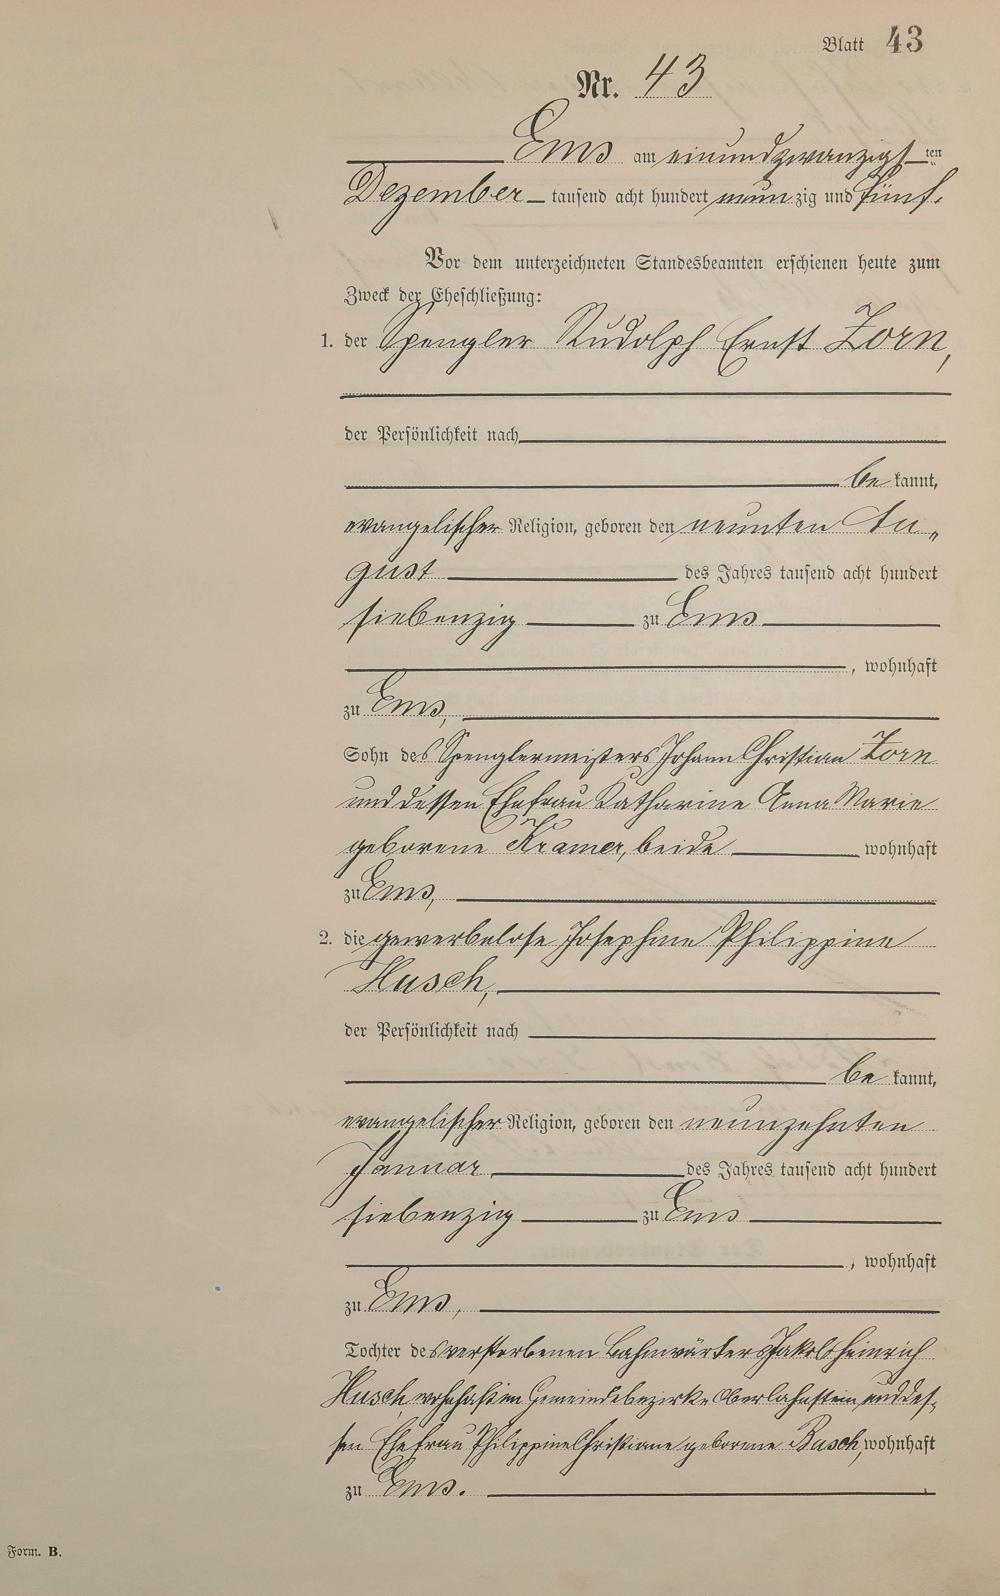 Blatt 43
Nr. 43
Ems am einundzwanzigsten
Dezember tausend acht hundert neunzig und fünf.
Vor dem unterzeichneten Standesbeamten erschienen heute zum
Zweck der Eheschließung:
1. der Spengler Rudolph Ernst Zorn,
der Persönlichkeit nach
be kannt,
evangelischer Religion, geboren den neunten Au„
gust des Jahres tausend acht hundert
siebenzig zu Ems
, wohnhaft
zu Ems,
Sohn des Spenglermeisters Johann Christian Zorn
und dessen Ehefrau Katharine Anna Marie
geborene Kramer, beide wohnhaft
zu Ems,
2. die gewerbelose Josephine Philippine
Husch,
der Persönlichkeit nach
be kannt,
evangelischer Religion, geboren den neunzehnten
Januar des Jahres tausend acht hundert
siebenzig zu Ems
, wohnhaft
zu Ems,
Tochter des verstorbenen Bahnwärters Jakob Heinrich
Husch, wohnhaft im Gemeindebezirke Oberlahnstein, und des-
sen Ehefrau Philippine Christiane geborene Busch, wohnhaft
zu Ems.
Form. B.